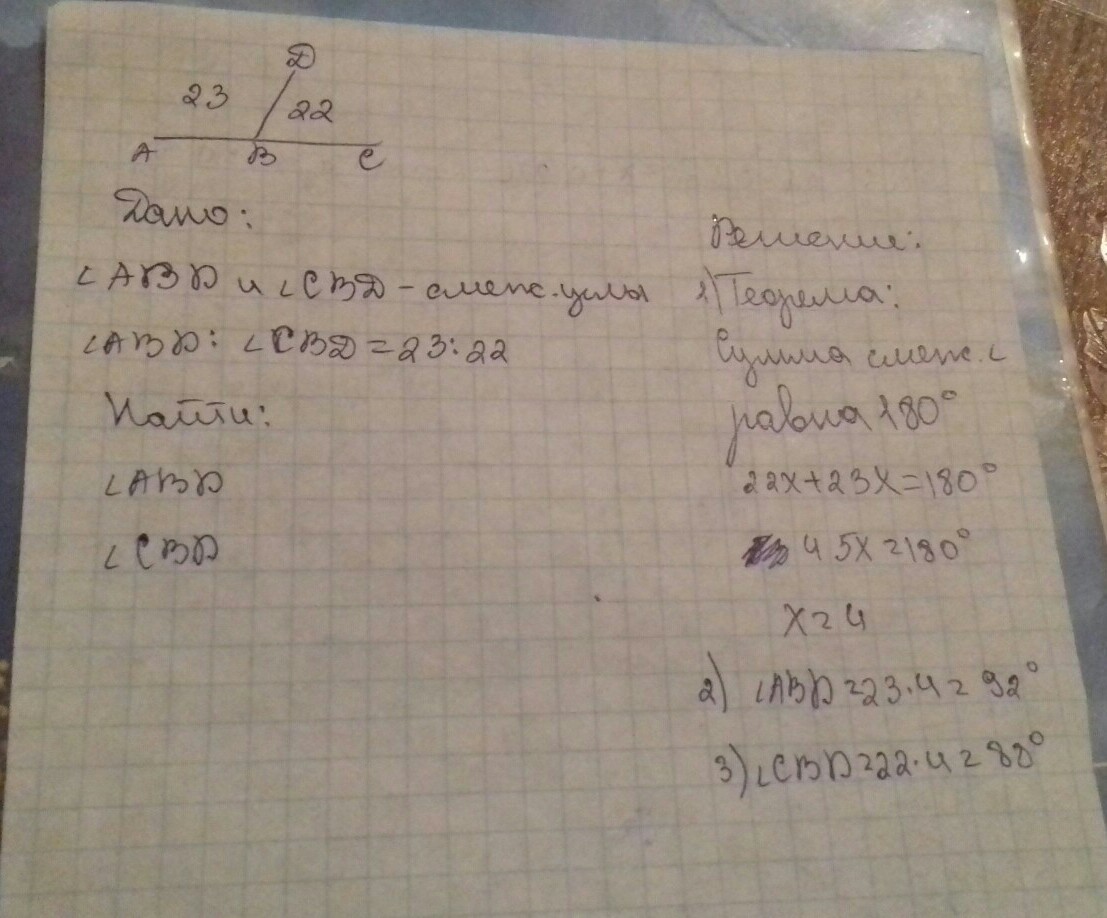 D
23 22
A B C
Дано:
∠ABD и ∠CBD - смеж. углы
∠ABD : ∠CBD = 23:22
Найти:
∠ABD
∠CBD
Решение:
1) Теорема:
Сумма смеж. ∠
равна 180°
22x+23x=180°
45x=180°
x=4
2) ∠ABD=23·4=92°
3) ∠CBD=22·4=88°